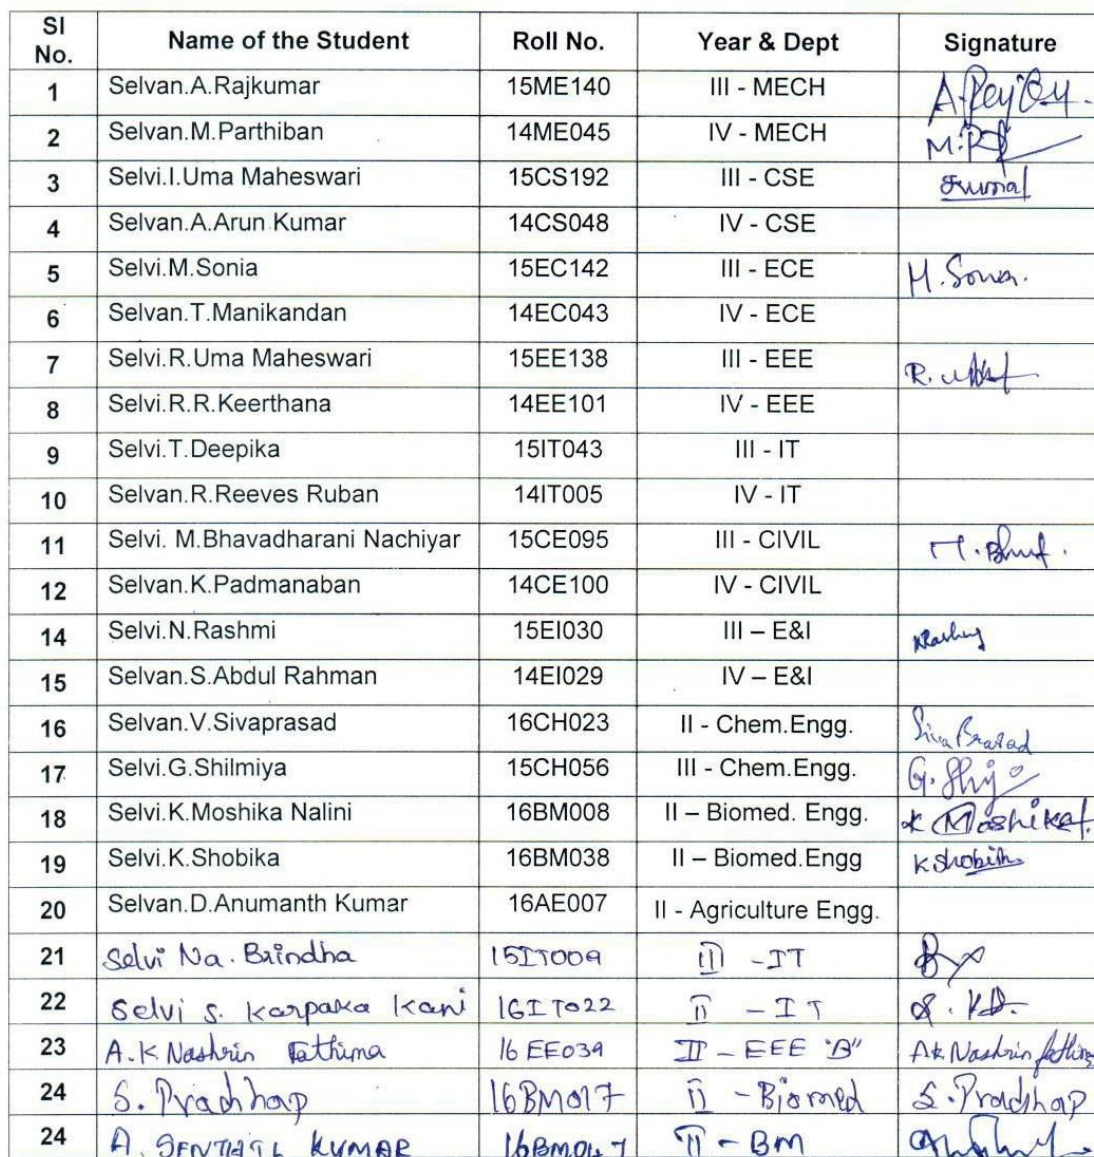 Sl No. Name of the Student Roll No. Year & Dept Signature
1 Selvan.A.Rajkumar 15ME140 III - MECH
2 Selvan.M.Parthiban 14ME045 IV - MECH
3 Selvi.I.Uma Maheswari 15CS192 III - CSE
4 Selvan.A.Arun Kumar 14CS048 IV - CSE
5 Selvi.M.Sonia 15EC142 III - ECE
6 Selvan.T.Manikandan 14EC043 IV - ECE
7 Selvi.R.Uma Maheswari 15EE138 III - EEE
8 Selvi.R.R.Keerthana 14EE101 IV - EEE
9 Selvi.T.Deepika 15IT043 III - IT
10 Selvan.R.Reeves Ruban 14IT005 IV - IT
11 Selvi. M.Bhavadharani Nachiyar 15CE095 III - CIVIL
12 Selvan.K.Padmanaban 14CE100 IV - CIVIL
14 Selvi.N.Rashmi 15EI030 III – E&I
15 Selvan.S.Abdul Rahman 14EI029 IV – E&I
16 Selvan.V.Sivaprasad 16CH023 II - Chem.Engg.
17 Selvi.G.Shilmiya 15CH056 III - Chem.Engg.
18 Selvi.K.Moshika Nalini 16BM008 II – Biomed. Engg. K Moshika
19 Selvi.K.Shobika 16BM038 II – Biomed.Engg K Shobika
20 Selvan.D.Anumanth Kumar 16AE007 II - Agriculture Engg.
21 Selvi Na. Brindha 15IT009 III - IT
22 Selvi S. Karpaka Kani 16IT022 II - IT
23 A.K Nashrin Fathima 16EE039 II - EEE "B" A.K. Nashrin fathima
24 S. Pradhap 16BM017 II - Biomed S. Pradhap
24 A. SENTHIL KUMAR 16BM047 II - BM